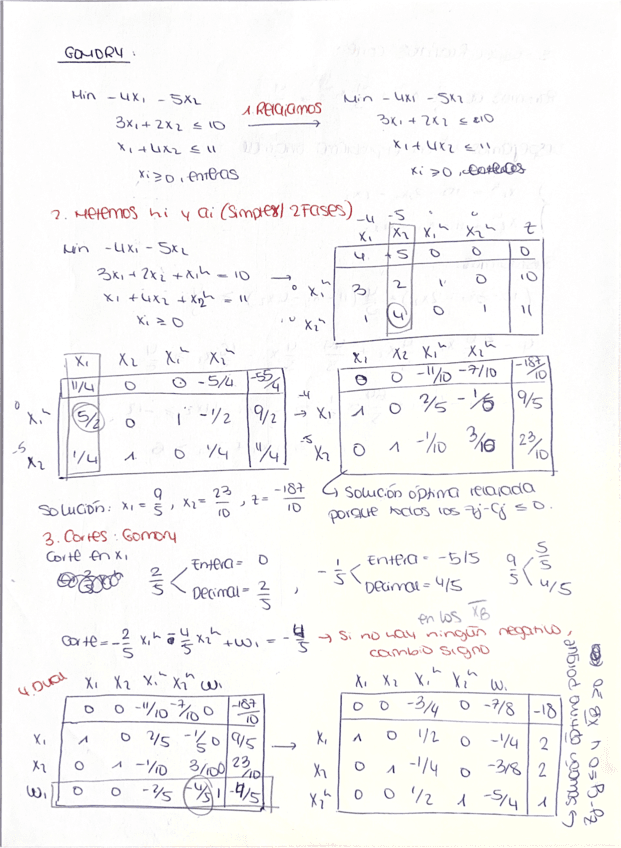 GOMORY:
Min -4x₁ - 5x₂
3x₁ + 2x₂ ≤ 10
x₁ + 4x₂ ≤ 11
xᵢ ≥ 0, enteras
1. Relajamos
Min -4x₁ - 5x₂
3x₁ + 2x₂ ≤ 10
x₁ + 4x₂ ≤ 11
xᵢ ≥ 0,
2. Metemos hi y ai (Simplex/2 Fases)
Min -4x₁ - 5x₂
3x₁ + 2x₂ + x₁ʰ = 10
x₁ + 4x₂ + x₂ʰ = 11
xᵢ ≥ 0
-4 -5 0 0
x₁ x₂ x₁ʰ x₂ʰ z
4 +5 0 0 0
0 x₁ʰ 3 2 1 0 10
0 x₂ʰ 1 4 0 1 11
x₁ x₂ x₁ʰ x₂ʰ
11/4 0 0 -5/4 -55/4
0 x₁ʰ 5/2 0 1 -1/2 9/2
-5 x₂ 1/4 1 0 1/4 11/4
x₁ x₂ x₁ʰ x₂ʰ
0 0 -11/10 -7/10 -187/10
-4 x₁ 1 0 2/5 -1/5 9/5
-5 x₂ 0 1 -1/10 3/10 23/10
Solución: x₁ = 9/5, x₂ = 23/10, z = -187/10
Solución óptima relajada
porque todos los zj-cj ≤ 0.
3. Cortes: Gomory
Corte en x₁
2/5 Entera = 0
Decimal = 2/5
, -1/5 Entera = -5/5
Decimal = 4/5
9/5 5/5
4/5
en los x̄B
Corte = -2/5 x₁ʰ - 4/5 x₂ʰ + w₁ = -4/5 → Si no hay ningún negativo,
cambio signo
4. Dual
x₁ x₂ x₁ʰ x₂ʰ w₁
0 0 -11/10 -7/10 0 -187/10
x₁ 1 0 2/5 -1/5 0 9/5
x₂ 0 1 -1/10 3/10 0 23/10
w₁ 0 0 -2/5 -4/5 1 -4/5
x₁ x₂ x₁ʰ x₂ʰ w₁
0 0 -3/4 0 -7/8 -18
x₁ 1 0 1/2 0 -1/4 2
x₂ 0 1 -1/4 0 -3/8 2
x₂ʰ 0 0 1/2 1 -5/4 1
↳ Solución óptima porque
zj-cj ≤ 0 y x̄B ≥ 0